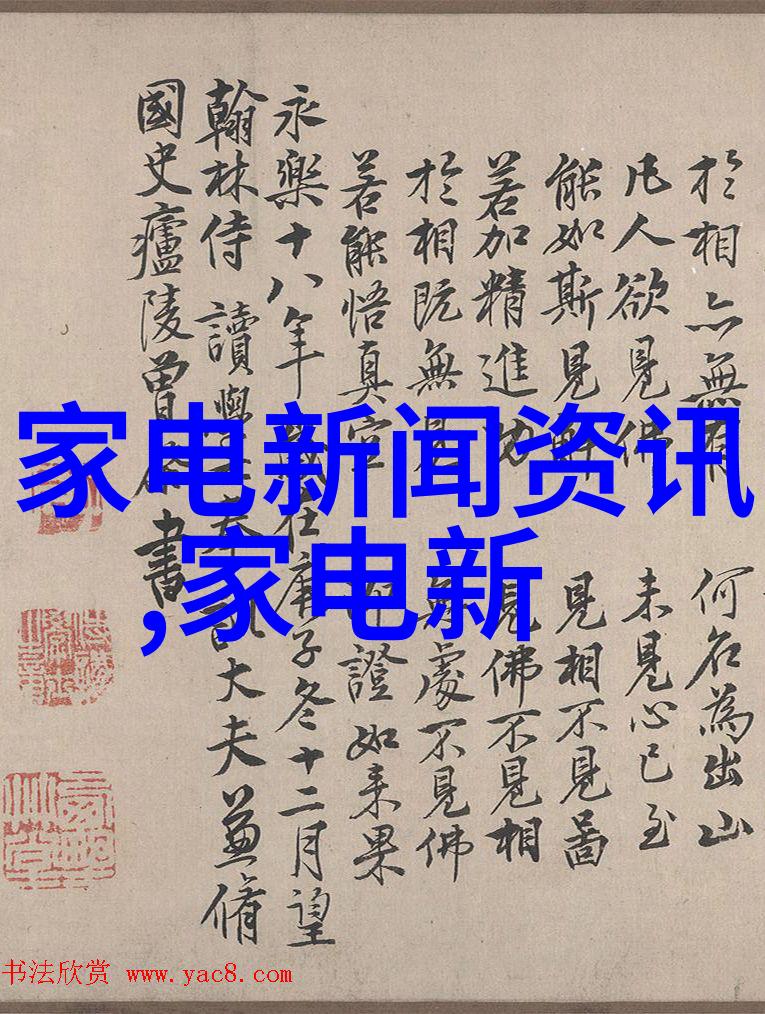 於相亦無有 何名為出山
凡人欲見佛 未見心已至
能如斯見解 見相不見啚
若加精進功 見佛不見相
於相既無見 無處不見佛
若能悟真空 證如来果
永樂十八年歲在庚子冬十二月望
翰林侍讀學士奉 大夫兼脩
國史廬陵曾 書
家电新闻资讯
,家电新
书法欣赏 www.yac8.com